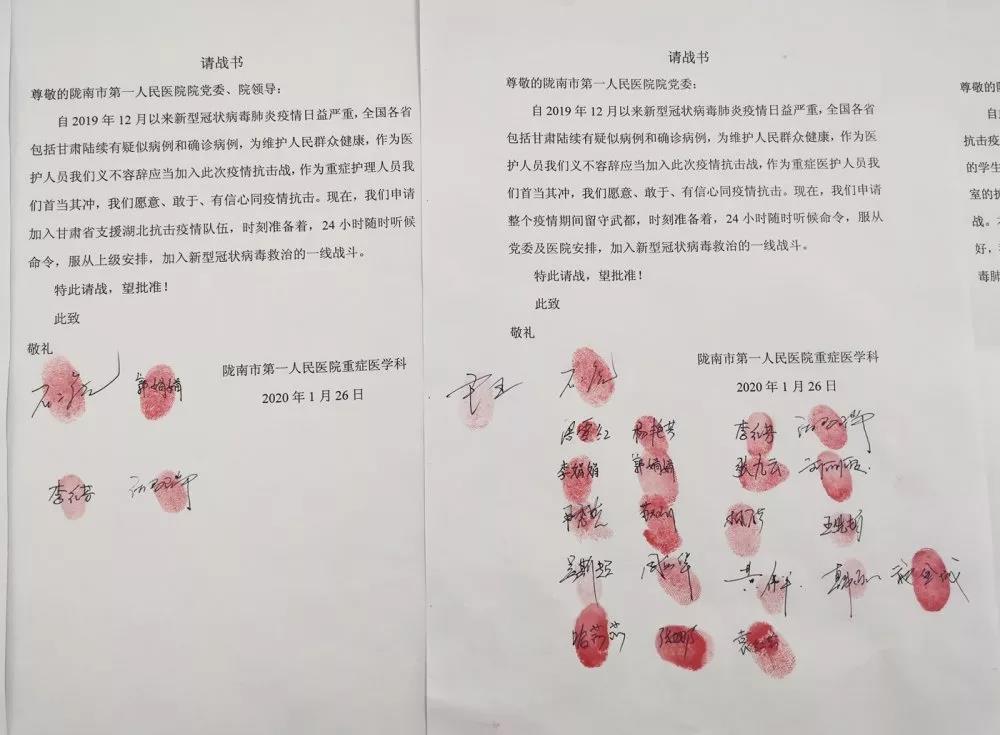 请战书
尊敬的陇南市第一人民医院院党委、院领导：
自 2019 年 12 月以来新型冠状病毒肺炎疫情日益严重，全国各省
包括甘肃陆续有疑似病例和确诊病例，为维护人民群众健康，作为医
护人员我们义不容辞应当加入此次疫情抗击战，作为重症护理人员我
们首当其冲，我们愿意、敢于、有信心同疫情抗击。现在，我们申请
加入甘肃省支援湖北抗击疫情队伍，时刻准备着，24 小时随时听候
命令，服从上级安排，加入新型冠状病毒救治的一线战斗。
特此请战，望批准！
此致
敬礼
陇南市第一人民医院重症医学科
2020 年 1 月 26 日
郭娟娟
请战书
尊敬的陇南市第一人民医院院党委：
自 2019 年 12 月以来新型冠状病毒肺炎疫情日益严重，全国各省
包括甘肃陆续有疑似病例和确诊病例，为维护人民群众健康，作为医
护人员我们义不容辞应当加入此次疫情抗击战，作为重症医护人员我
们首当其冲，我们愿意、敢于、有信心同疫情抗击。现在，我们申请
整个疫情期间留守武都，时刻准备着，24 小时随时听候命令，服从
党委及医院安排，加入新型冠状病毒救治的一线战斗。
特此请战，望批准！
此致
敬礼
陇南市第一人民医院重症医学科
2020 年 1 月 26 日
杨艳芳
李娟娟 郭娟娟 张九云
尊敬的陇
自
抗击疫
的学生
室的护
战。
好，
毒肺